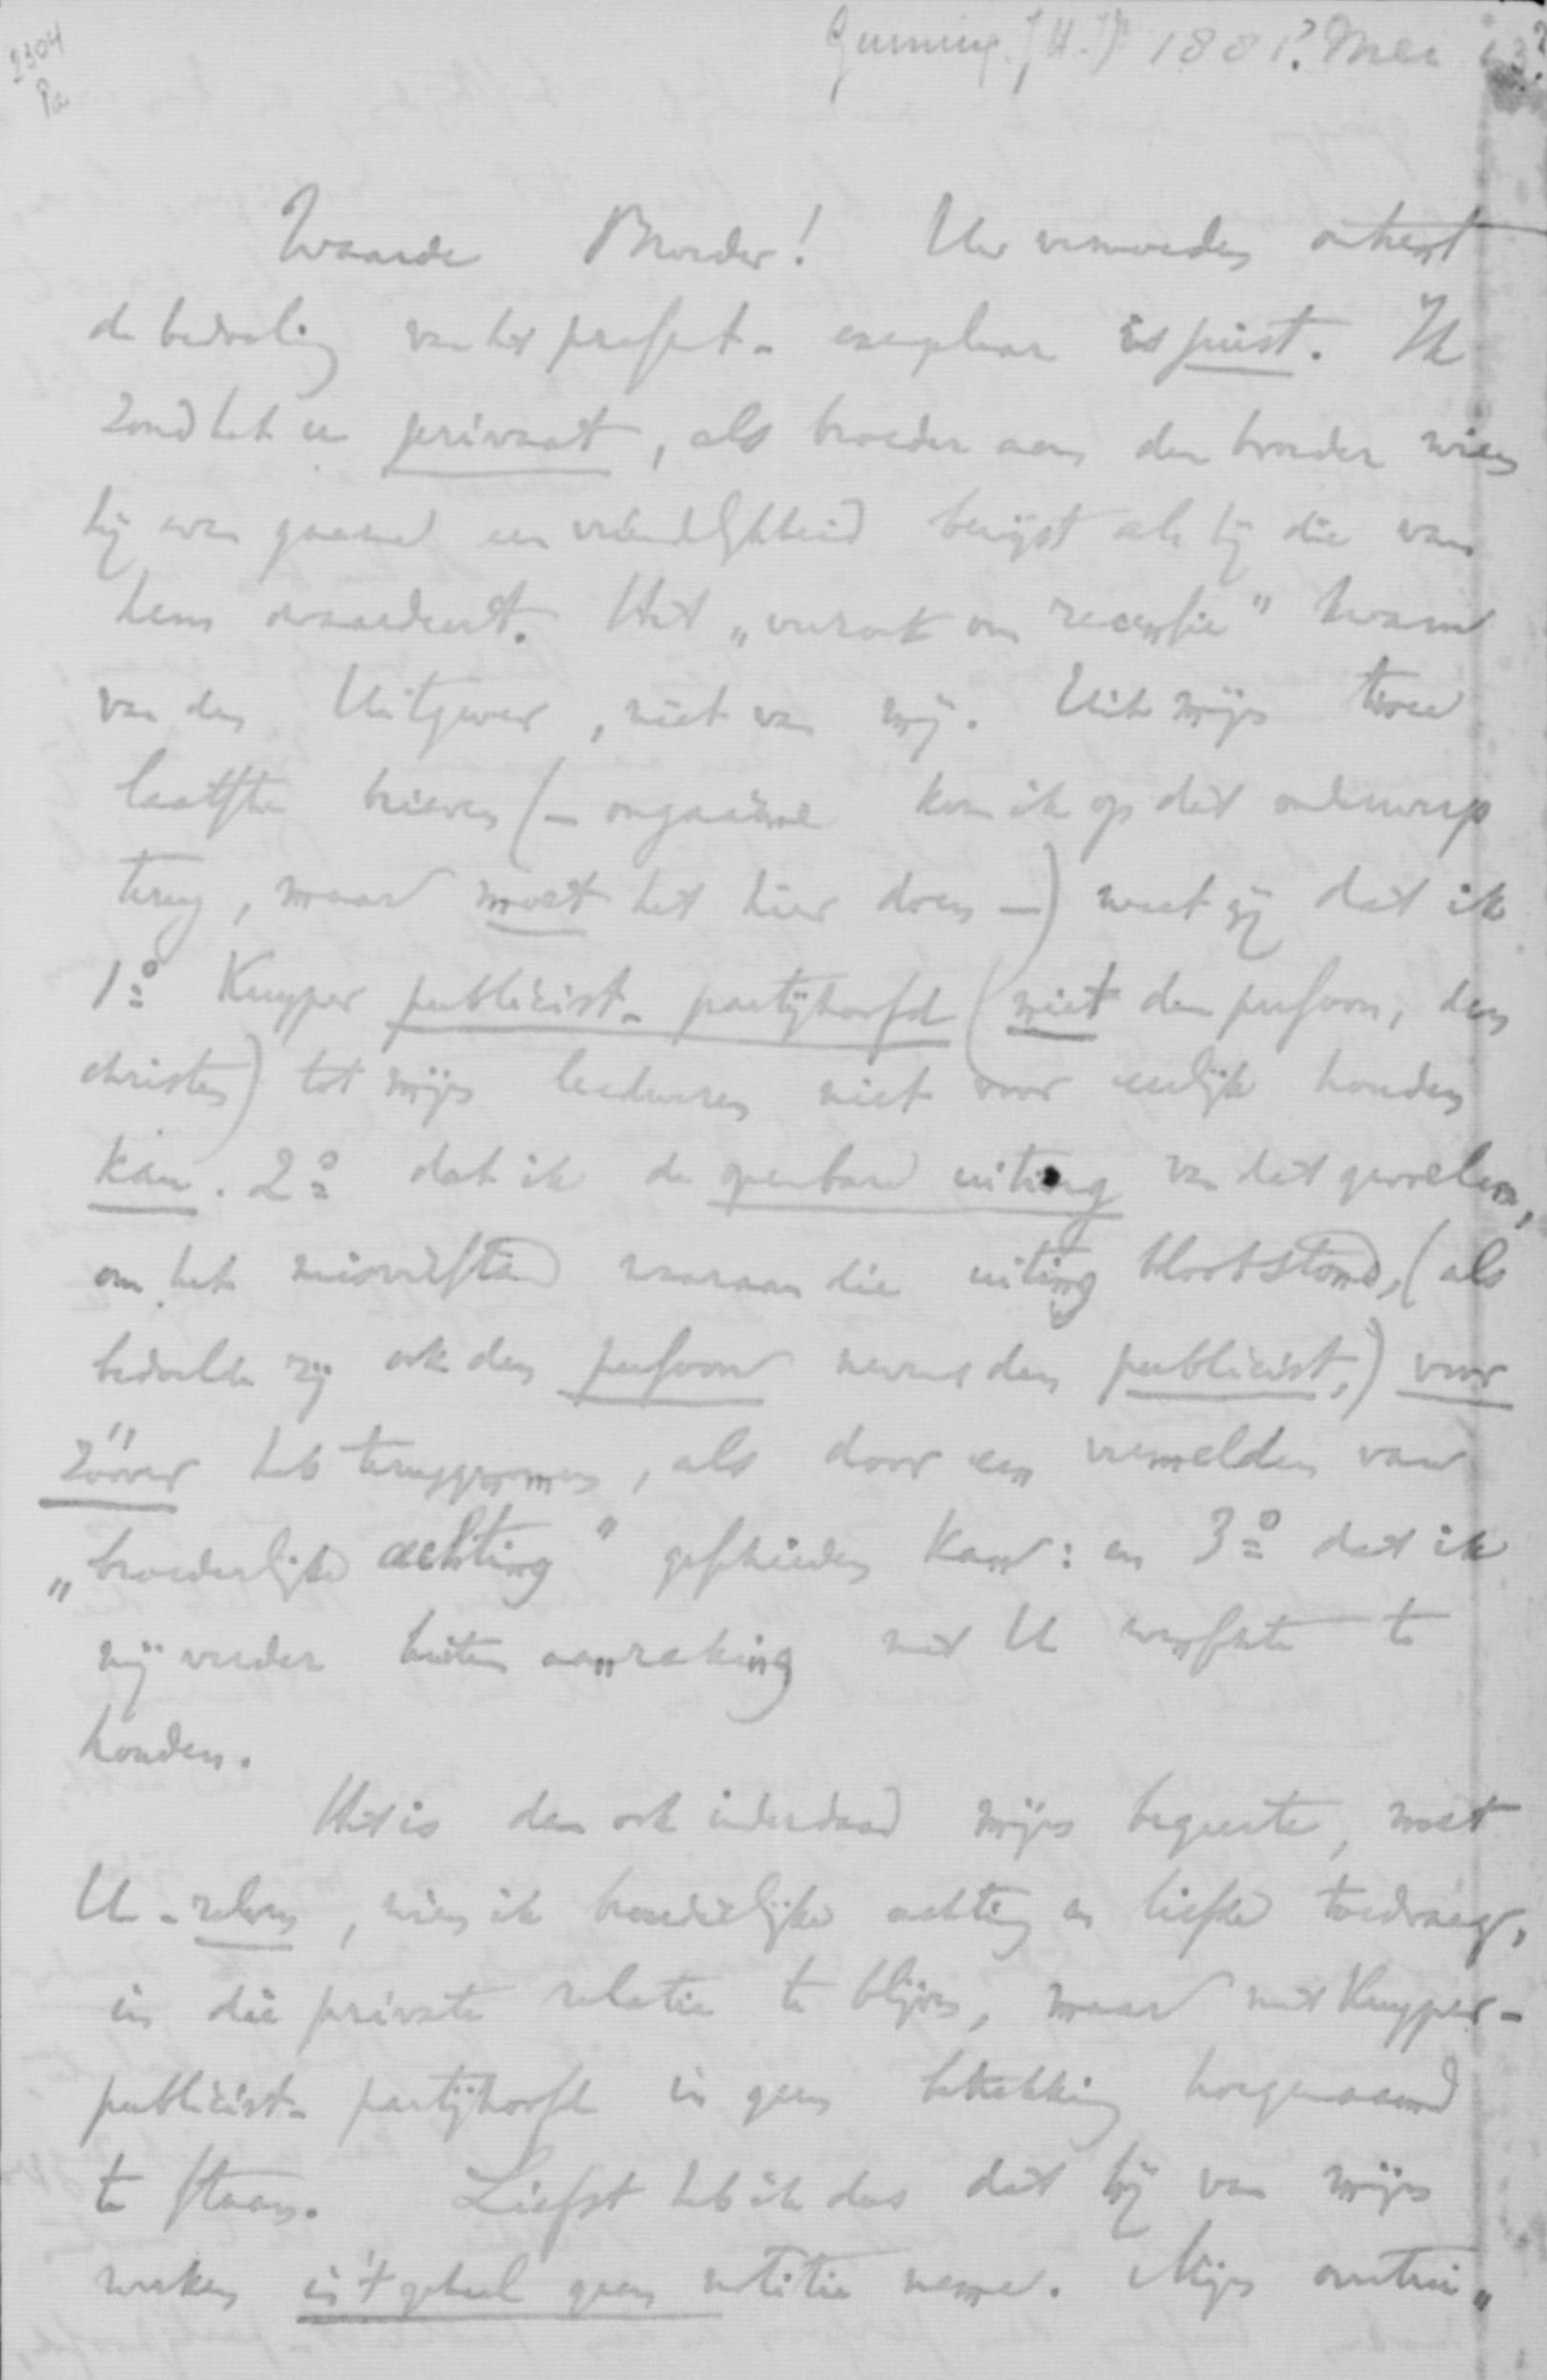 2304
Pa
Gunning. J.H. Jr 1881? Mei 13?
Waarde Broeder! Uw vermoeden omtrent
de bedoeling van het present-exemplaar is juist. Ik
zond het u privaat, als broeder aan den broeder wien
hij van gaarne een vriendlijkheid bewijst als hij die van
hem waardeert. Het „verzoek om recensie" kwam
van den Uitgever, niet van mij. Uit mijn twee
laatste brieven (— ongaarne kom ik op dit onderwerp
terug, maar moet het hier doen —) weet gij dat ik
1º Kuyper publicist-partijhoofd (niet den persoon, den
christen) tot mijn leedwezen niet voor eerlijk houden
kan. 2º dat ik de openbare uiting van dat gevoelen,
om het misverstand waaraan die uiting blootstond, (als
bedoelde zij ook den persoon nevens den publicist,) voor
zóóver heb teruggenomen, als door een vermelden van
„broederlijke achting" geschieden kan: en 3º dat ik
mij verder buiten aanraking met U wenschte te
houden.
Het is dan ook inderdaad mijn begeerte, met
U-zelven, wien ik broederlijke achting en liefde toedraag,
in die private relatie te blijven, maar met Kuyper-
publicist-partijhoofd in geen betrekking hoegenaamd
te staan. Liefst heb ik dus dat hij van mijn
werken in 't geheel geen notitie neme. Mijn